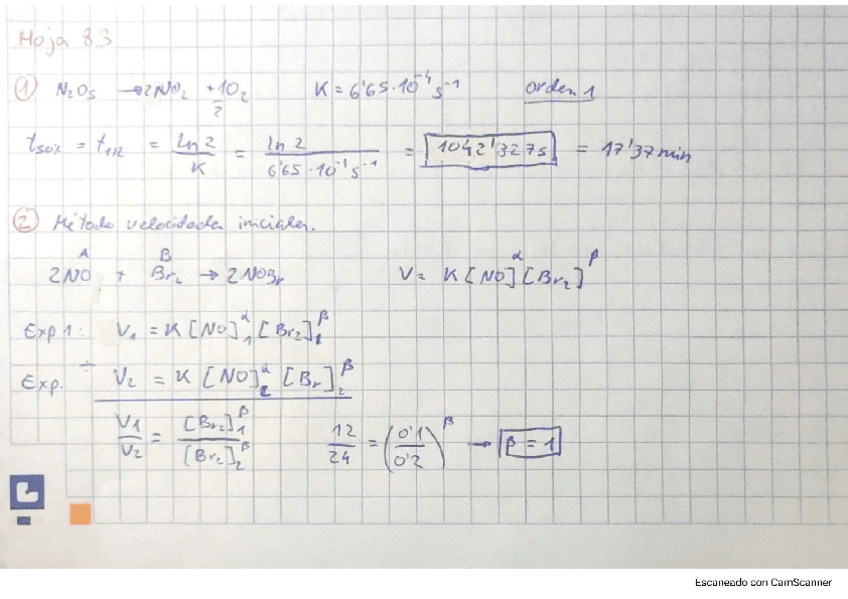 Hoja 8.3
① N₂O₅ → 2NO₂ + 1/2 O₂ K = 6'65·10⁻⁴ s⁻¹ orden 1
t50% = t1/2 = ln 2 / K = ln 2 / 6'65·10⁻⁴ s⁻¹ = 1042'327 s = 17'37 min
② Método velocidades iniciales.
A B
2NO + Br₂ → 2NOBr V = K [NO]^α [Br₂]^β
Exp 1: V₁ = K [NO]₁^α [Br₂]₁^β
Exp. ÷ V₂ = K [NO]₂^α [Br]₂^β
V₁/V₂ = [Br₂]₁^β / [Br₂]₂^β 12/24 = (0'1/0'2)^β → β = 1
Escaneado con CamScanner